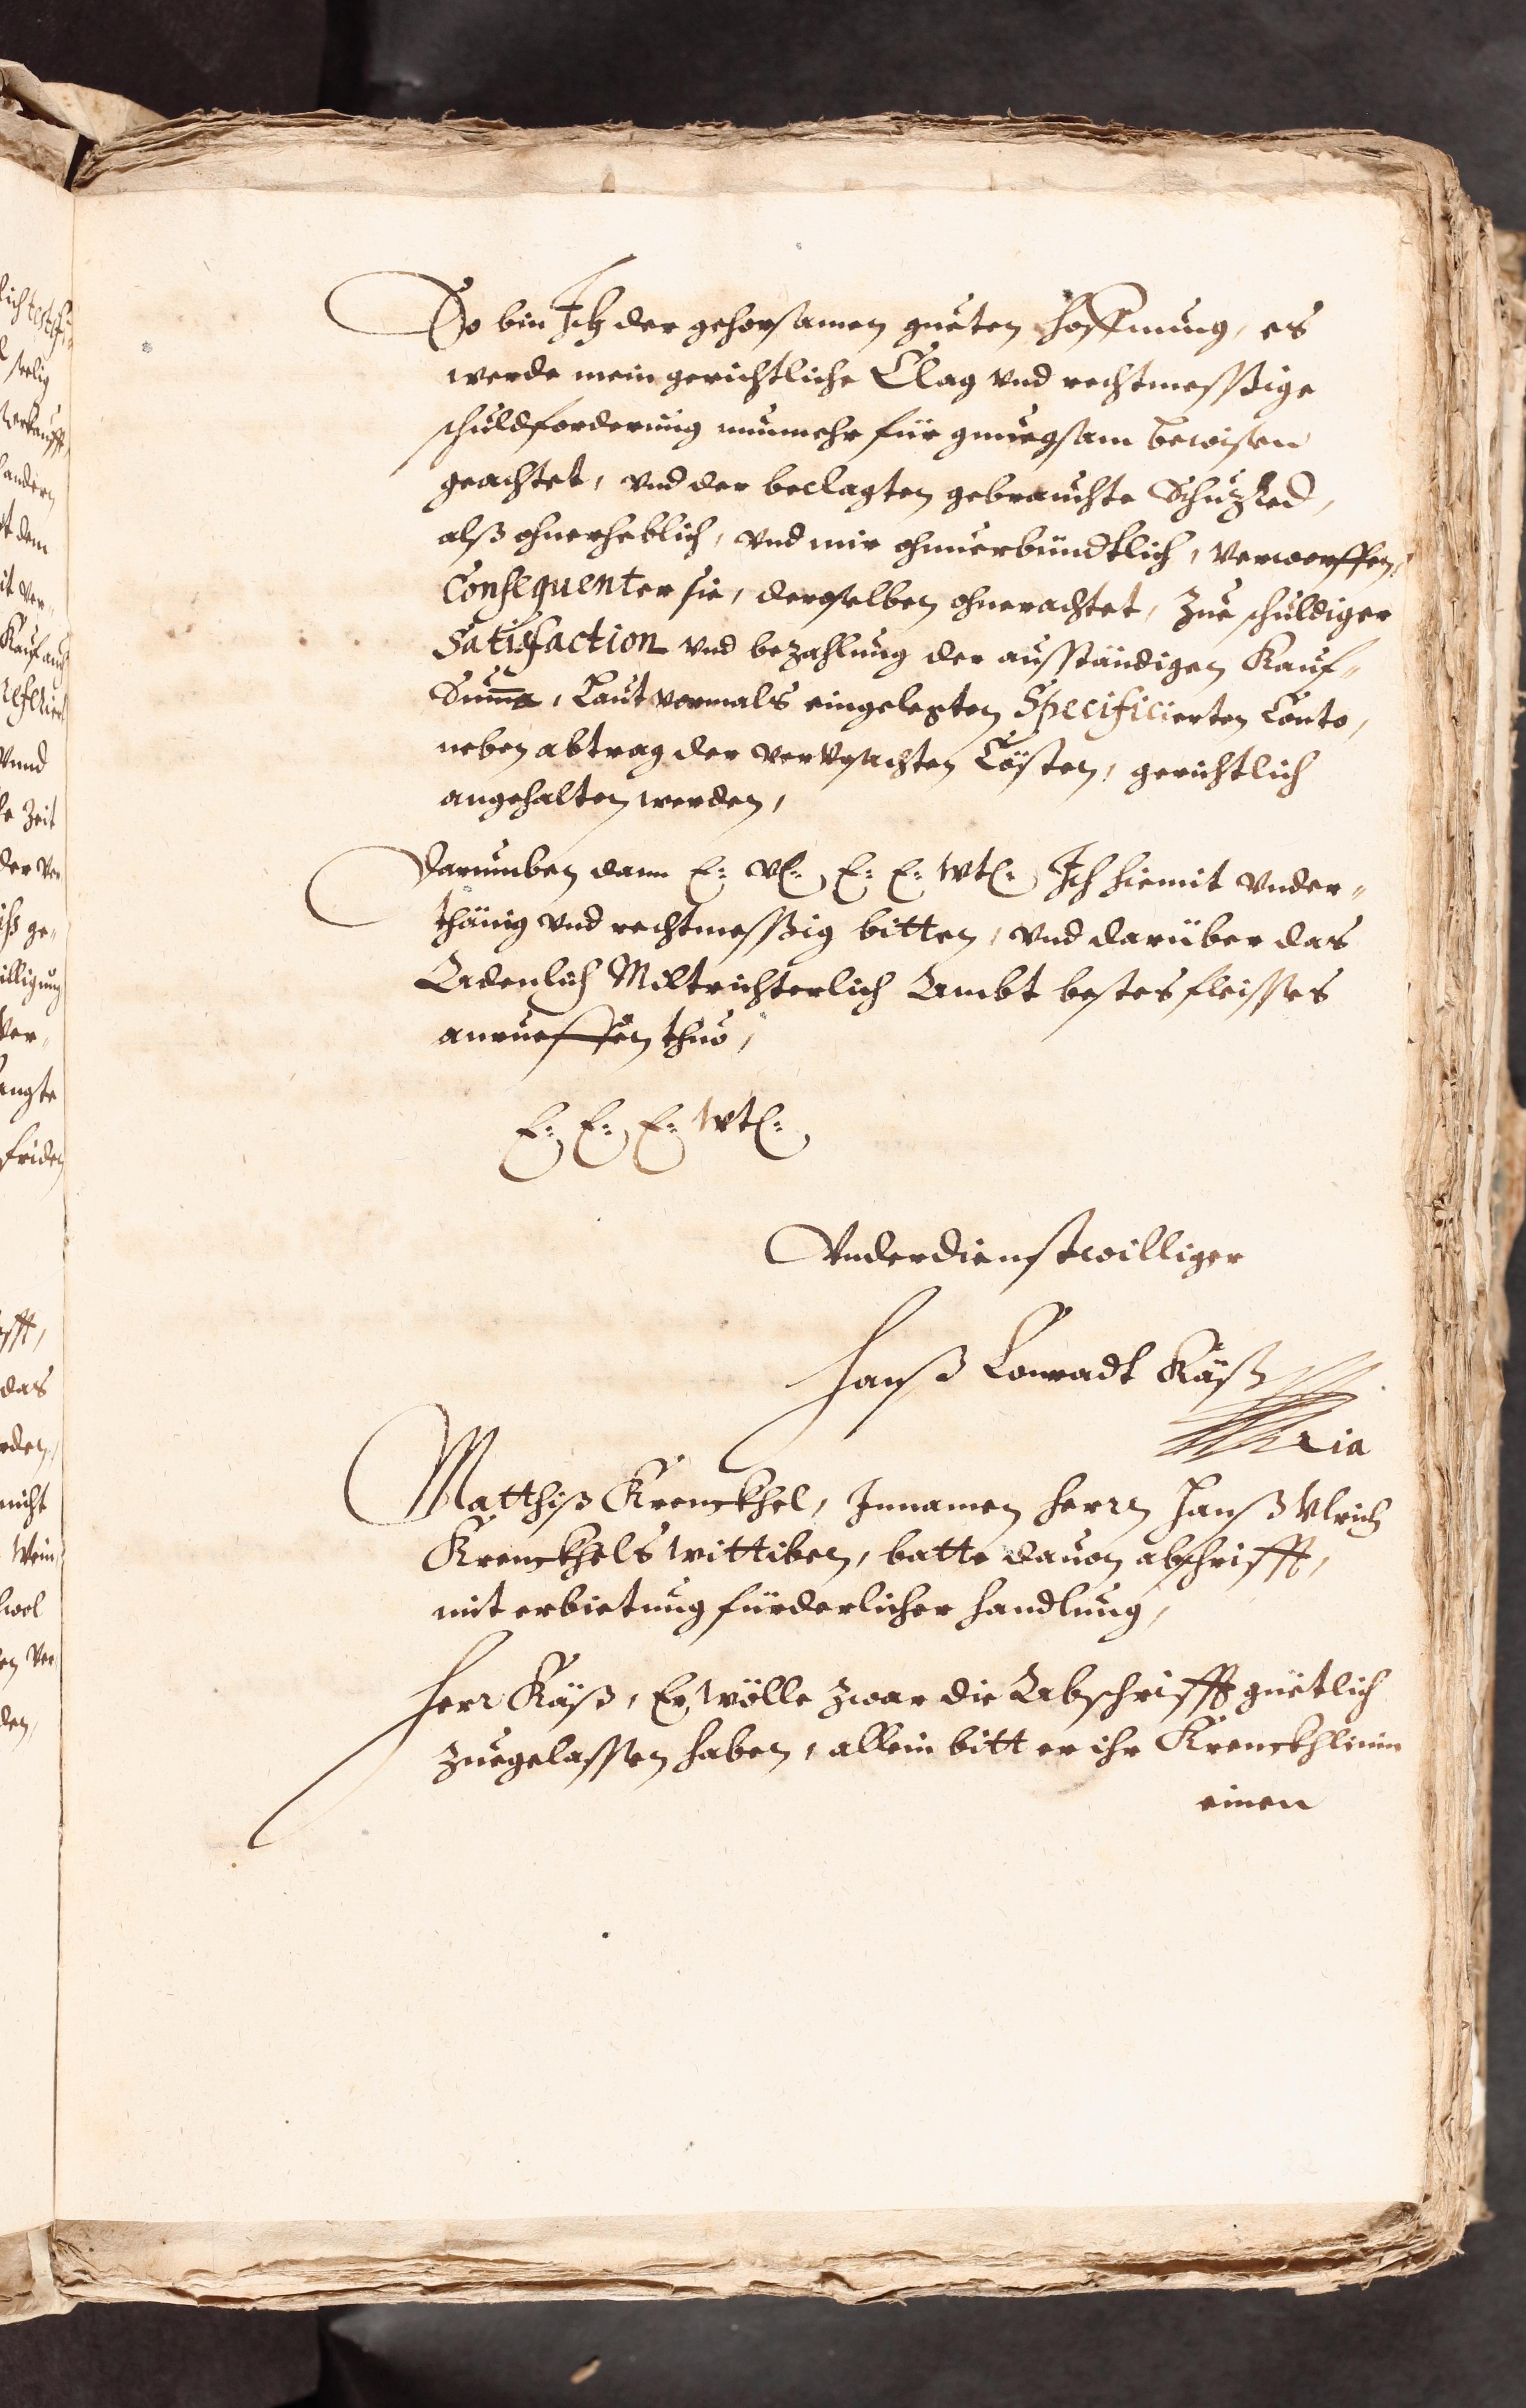 So bin Ich der gehorsamen gueten hoffnung, es
werde mein gerichtliche Clag vnd rechtmessige
schuldforderung nunmehr für gnuegsam bewisen
geachtet, vnd der beclagten gebrauchte Schuzred,
alß ohnerheblich, vnd mir ohnuerbündtlich, verworffen,
Consequenter sie, derselben ohnerachtet, Zue schuldiger
Satisfaction vnd bezahlung der ausständigen Kauf„
Summa, Laut vormals eingelegten Specificierten Conto,
neben abtrag der vervrsachten Cösten, gerichtlich
angehalten werden,
Darumben dann E: E: E: Wtl: Ich hiemit vnder„
thänig vnd rechtmessig bitten, vnd darüber das
Adenlich Miltrichterlich Ambt bestes fleisses
anrueffen thuo,
E: E: E: Wtl:
Vnderdienstwilliger
Hanß Conradt Räß
Matthiß Krenckhel, Innamen herrn Hanß Vlrich
Krenckhels wittiben, batte dauon abschrifft,
mit erbietung fürderlicher handlung,
Herr Räß, Er wölle zwar die Abschrifft güetlich
zuegelassen haben, allein bitt er ihr Krenckhlinin
einen